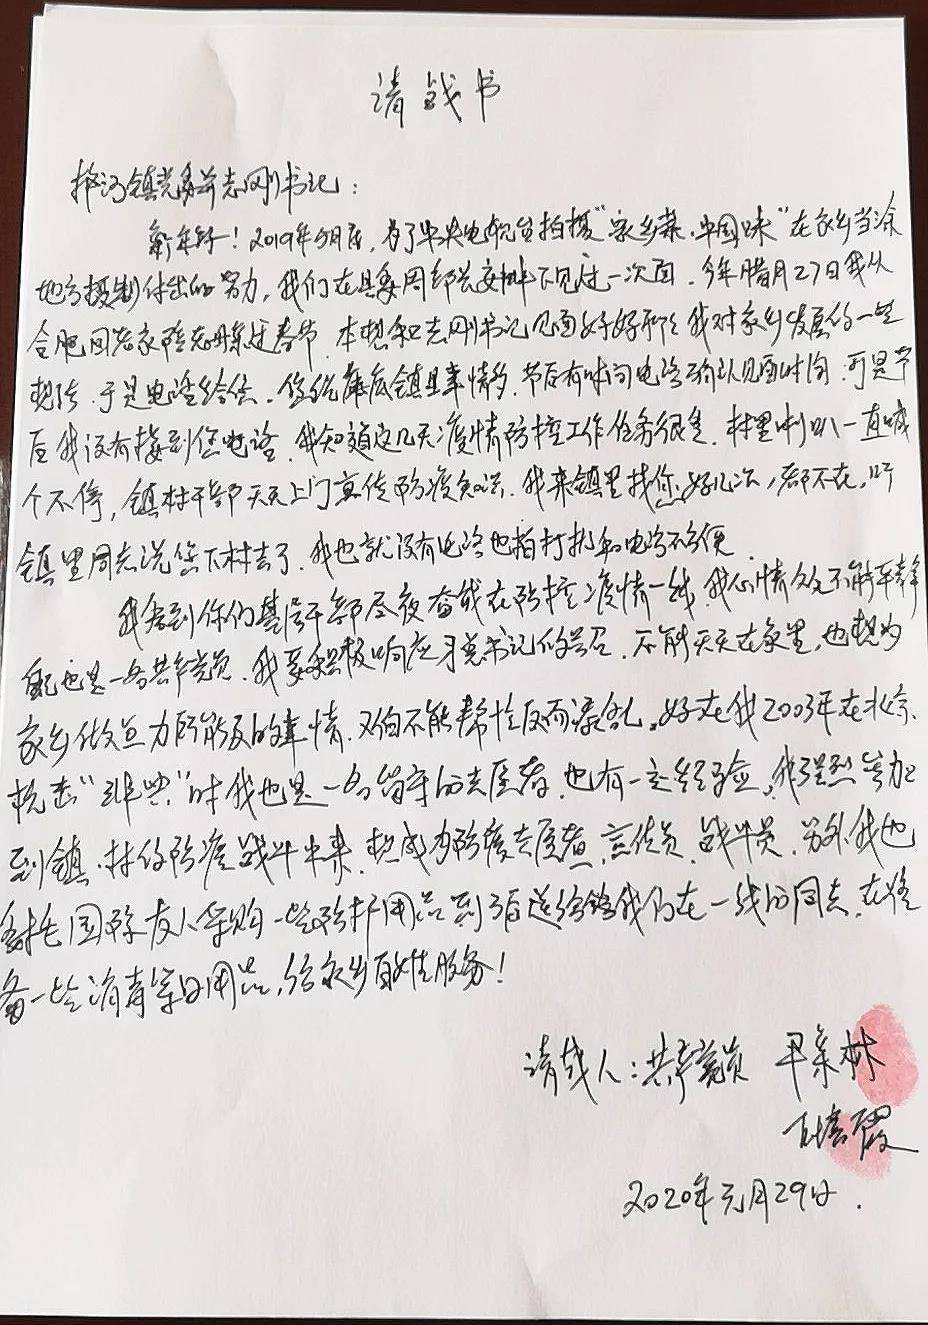 请战书
镇党委并志刚书记：
新年好！2019年 月底，为了中央电视台拍摄“家乡菜·中国味”在家乡当涂
地方摄制付出的努力，我们在县委周部长安排下见过一次面．今年腊月27日我从
合肥回老家陪老母亲过春节．本想和志刚书记见面好好聊聊我对家乡发展的一些
想法．于是电话给您．您说年底镇里事情多．节后有时间电话确认见面时间．可是节
后我没有接到您电话．我知道这几天疫情防控工作任务很重．村里喇叭一直喊
个不停，镇村干部天天上门宣传防疫知识．我来镇里找您好几次，都不在，听
镇里同志说您下村去了．我也就没有电话也怕打扰和电话不方便
我看到你们基层干部昼夜奋战在防控疫情一线，我心情久久不能平静
自己也是一名共产党员．我要积极响应习总书记的号召．不能天天在家里，也想为
家乡做点力所能及的事情．又怕不能帮忙反而添乱。好在我2003年在北京
抗击“非典”时我也是一名留守的志愿者．也有一定经验，我强烈参加
到镇、村的防疫战斗中来．想成为防疫志愿者、宣传员、战斗员．另外，我也
委托国际友人采购一些防护用品到后送给我们在一线的同志．在准
备一些消毒等日用品，给家乡百姓服务！
请战人：共产党员 尹 林
霞
2020年元月29日．